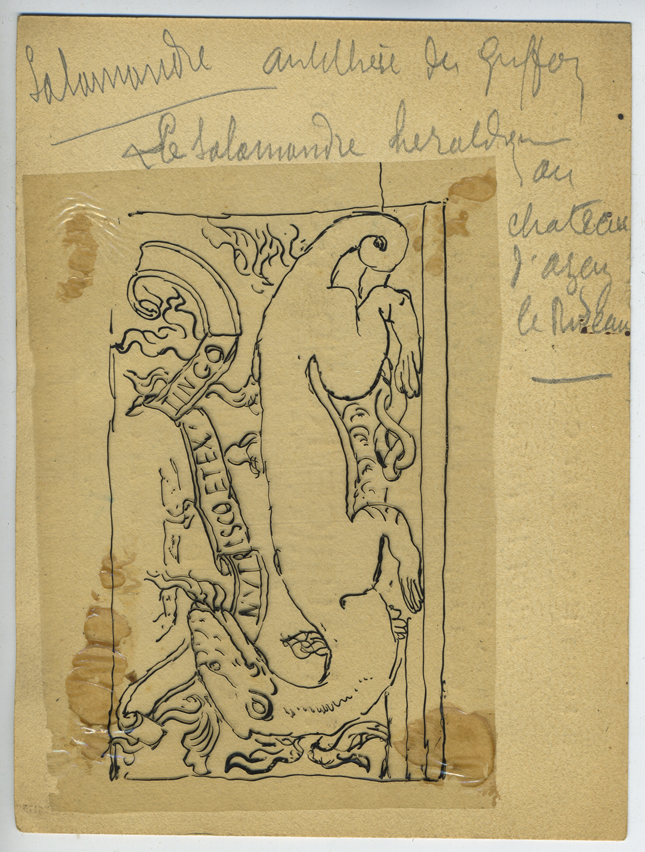 Salamandre antithèse du Griffon
La Salamandre heraldique
au
chateau
d'azay
le Rideau
NVTRISCO ET EXTINGO